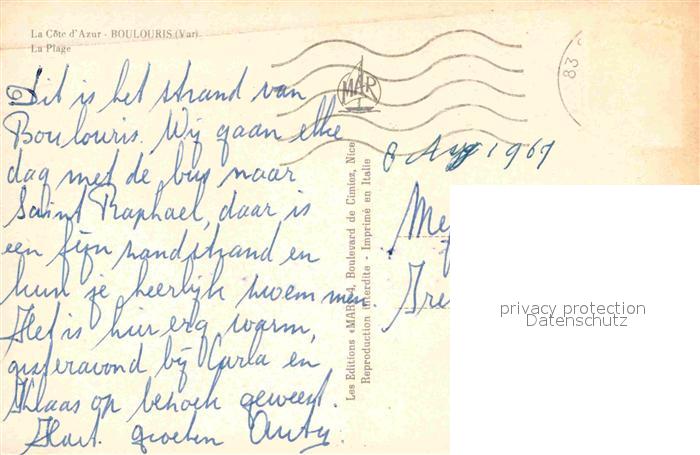 La Côte d'Azur - BOULOURIS (Var)
La Plage
Dit is het strand van
Boulouris. Wij gaan elke
dag met de bus naar
Saint Raphael, daar is
een fijn zandstrand en
kun je heerlijk zwemmen.
Het is hier erg warm,
gisteravond bij Carla en
Klaas op bezoek geweest.
Hart. groeten
MAR
83
8 Aug 1967
Les Editions «MAR», 4, Boulevard de Cimiez, Nice
Reproduction interdite - Imprimé en Italie
privacy protection
Datenschutz